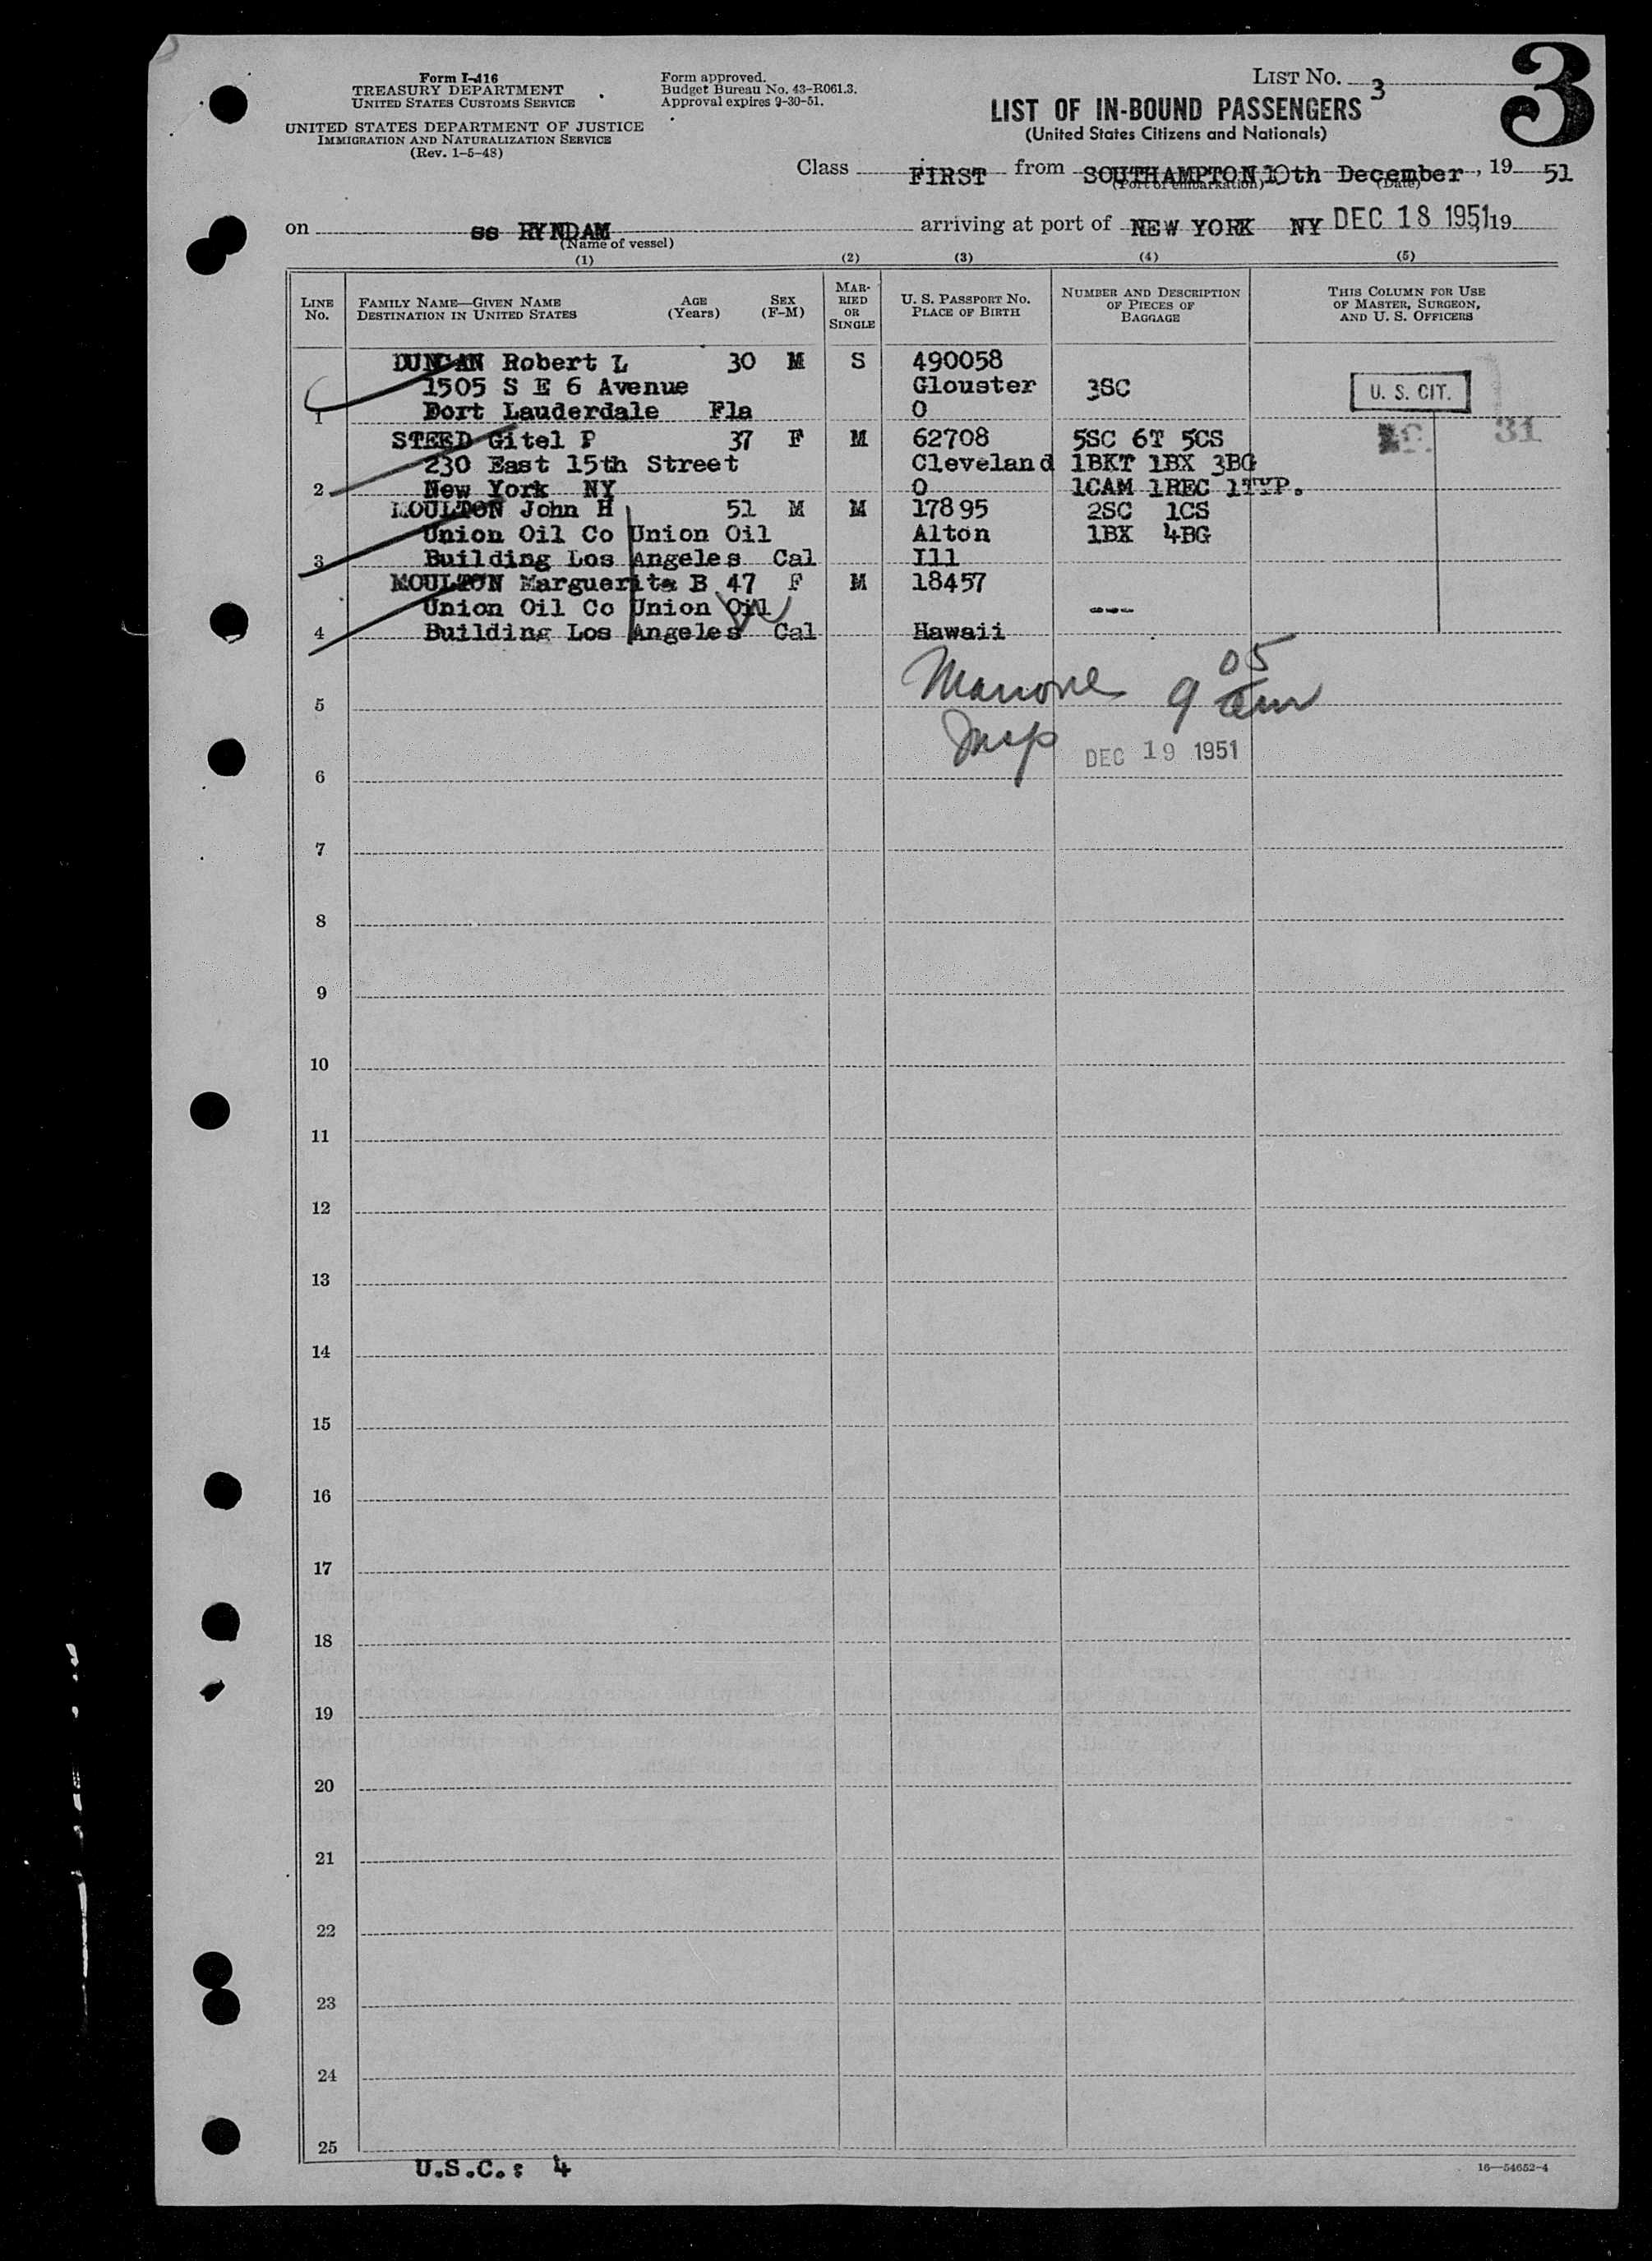 3
Form I-416
TREASURY DEPARTMENT
UNITED STATES CUSTOMS SERVICE
UNITED STATES DEPARTMENT OF JUSTICE
IMMIGRATION AND NATURALIZATION SERVICE
(Rev. 1-5-48)
Form approved.
Budget Bureau No. 43-R061.3.
Approval expires 9-30-51.
LIST NO. 3
LIST OF IN-BOUND PASSENGERS
(United States Citizens and Nationals)
Class FIRST from SOUTHAMPTON 10th December, 19 51
(Port of embarkation) (Date)
on ss RYNDAM arriving at port of NEW YORK NY DEC 18 1951, 19
(Name of vessel)
(1) (2) (3) (4) (5)
LINE No. FAMILY NAME—GIVEN NAME DESTINATION IN UNITED STATES AGE (Years) SEX (F-M) MARRIED OR SINGLE U. S. PASSPORT No. PLACE OF BIRTH NUMBER AND DESCRIPTION OF PIECES OF BAGGAGE THIS COLUMN FOR USE OF MASTER, SURGEON, AND U. S. OFFICERS
DUNCAN Robert L 30 M S 490058
1505 S E 6 Avenue Glouster 3SC U. S. CIT.
1 Fort Lauderdale Fla O
STEED Gitel P 37 F M 62708 5SC 6T 5CS 31
230 East 15th Street Cleveland 1BKT 1BX 3BG
2 New York NY O 1CAM 1REC 1TYP.
MOULTON John H 51 M M 17895 2SC 1CS
Union Oil Co Union Oil Alton 1BX 4BG
3 Building Los Angeles Cal Ill
MOULTON Marguerita B 47 F M 18457
Union Oil Co Union Oil ---
4 Building Los Angeles Cal Hawaii
9 05 am
5
Insp DEC 19 1951
6
7
8
9
10
11
12
13
14
15
16
17
18
19
20
21
22
23
24
25
U.S.C.: 4
16—54652-4